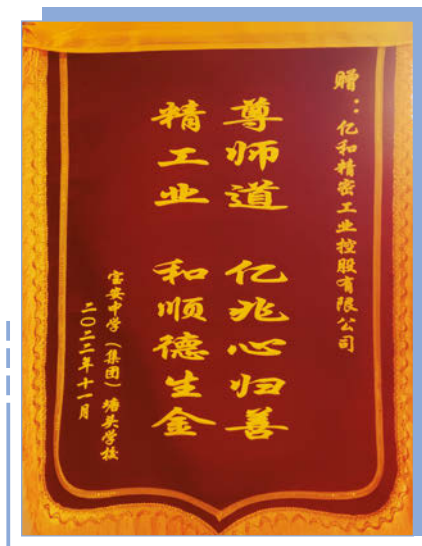 赠：亿和精密工业控股有限公司
尊师道 亿兆心归善
精工业 和顺德生金
宝安中学（集团）塘头学校
二〇二二年十一月